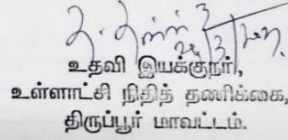 உதவி இயக்குநர்,
உள்ளாட்சி நிதித் தணிக்கை,
திருப்பூர் மாவட்டம்.